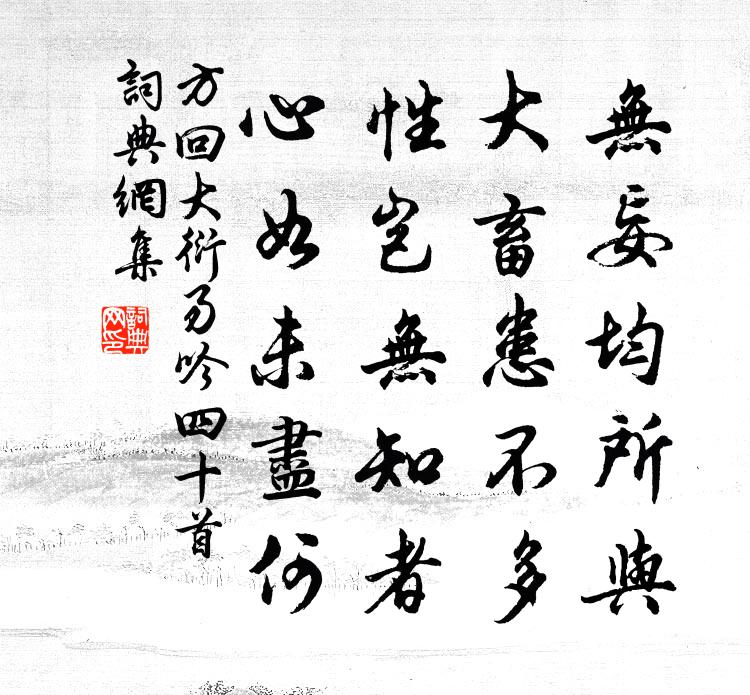 無妄均所與
大畜患不多
性豈無知者
心如未盡何
方回大衍易吟四十首
詞典網集
詞典网印